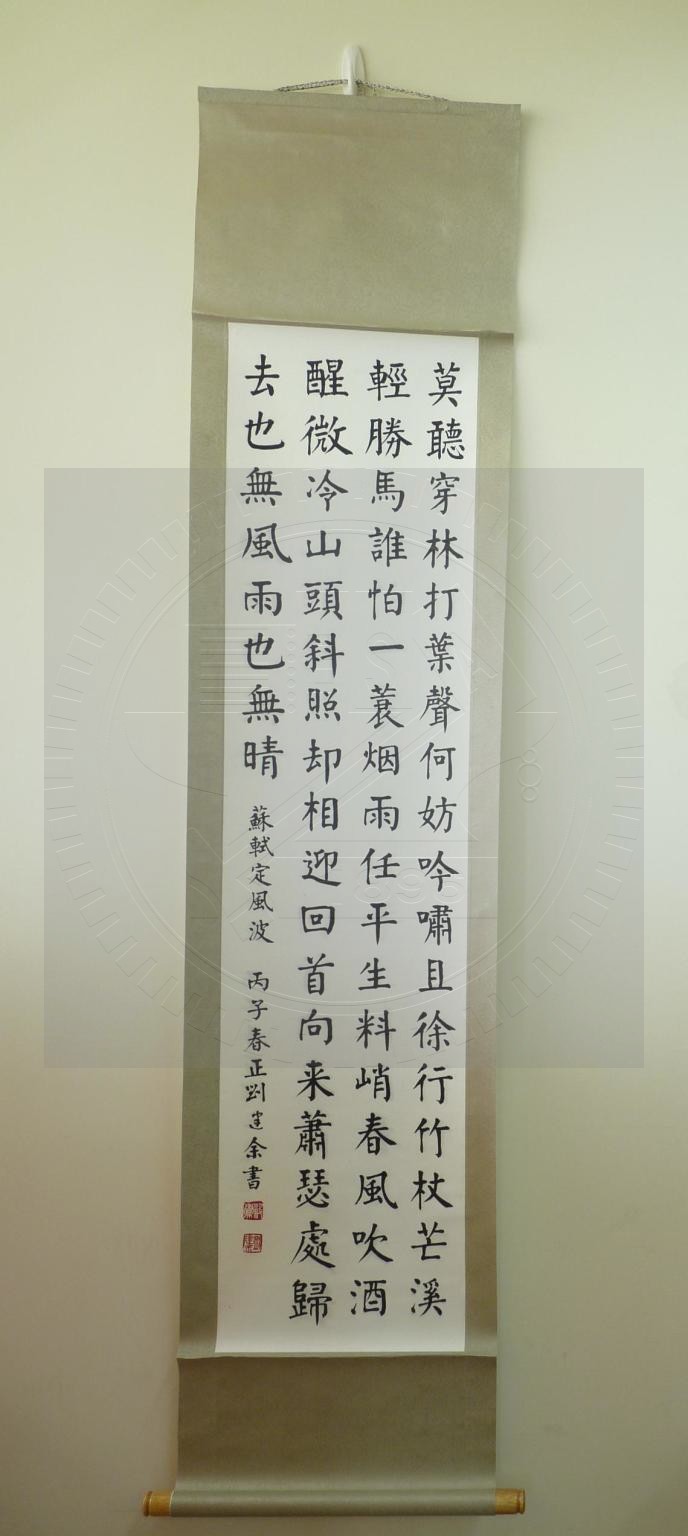 莫聽穿林打葉聲何妨吟嘯且徐行竹杖芒溪
輕勝馬誰怕一蓑烟雨任平生料峭春風吹酒
醒微冷山頭斜照却相迎回首向来蕭瑟處歸
去也無風雨也無晴
蘇軾定風波 丙子春正劉建余書